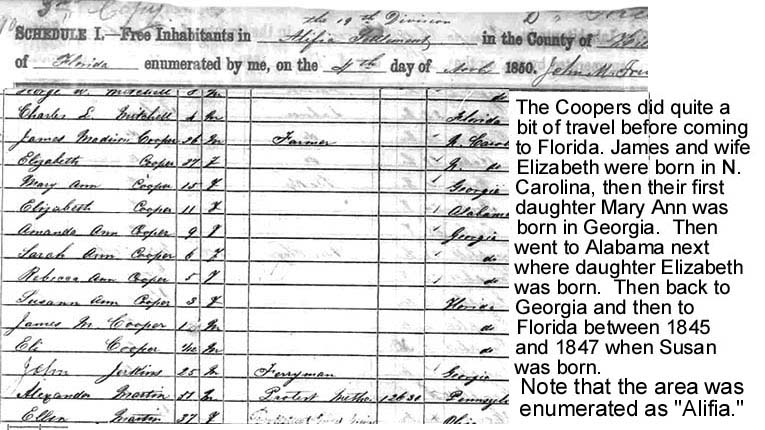 Copy
the 19th Division
SCHEDULE I.—Free Inhabitants in Alifia Settlement in the County of
of Florida enumerated by me, on the 4th day of Novb 1850. John M
George W. Mitchell 8 M do
Charles L. Mitchell 4 M Florida
James Madison Cooper 36 M Farmer N. Carol
Elizabeth Cooper 37 F N. do
Mary Ann Cooper 15 F Georgia
Elizabeth Cooper 11 F Alabama
Amanda Ann Cooper 9 F Georgia
Sarah Ann Cooper 6 F do
Rebecca Ann Cooper 5 F do
Susann Ann Cooper 3 F Florida
James M. Cooper 1 M do
Eli Cooper M do
John Jerkins 25 M Ferryman Georgia
Alexander Martin 51 M Protest Metho 1263 Pennsylv
Ellen Martin 37 F Ohio
The Coopers did quite a
bit of travel before coming
to Florida. James and wife
Elizabeth were born in N.
Carolina, then their first
daughter Mary Ann was
born in Georgia. Then
went to Alabama next
where daughter Elizabeth
was born. Then back to
Georgia and then to
Florida between 1845
and 1847 when Susan
was born.
Note that the area was
enumerated as "Alifia."